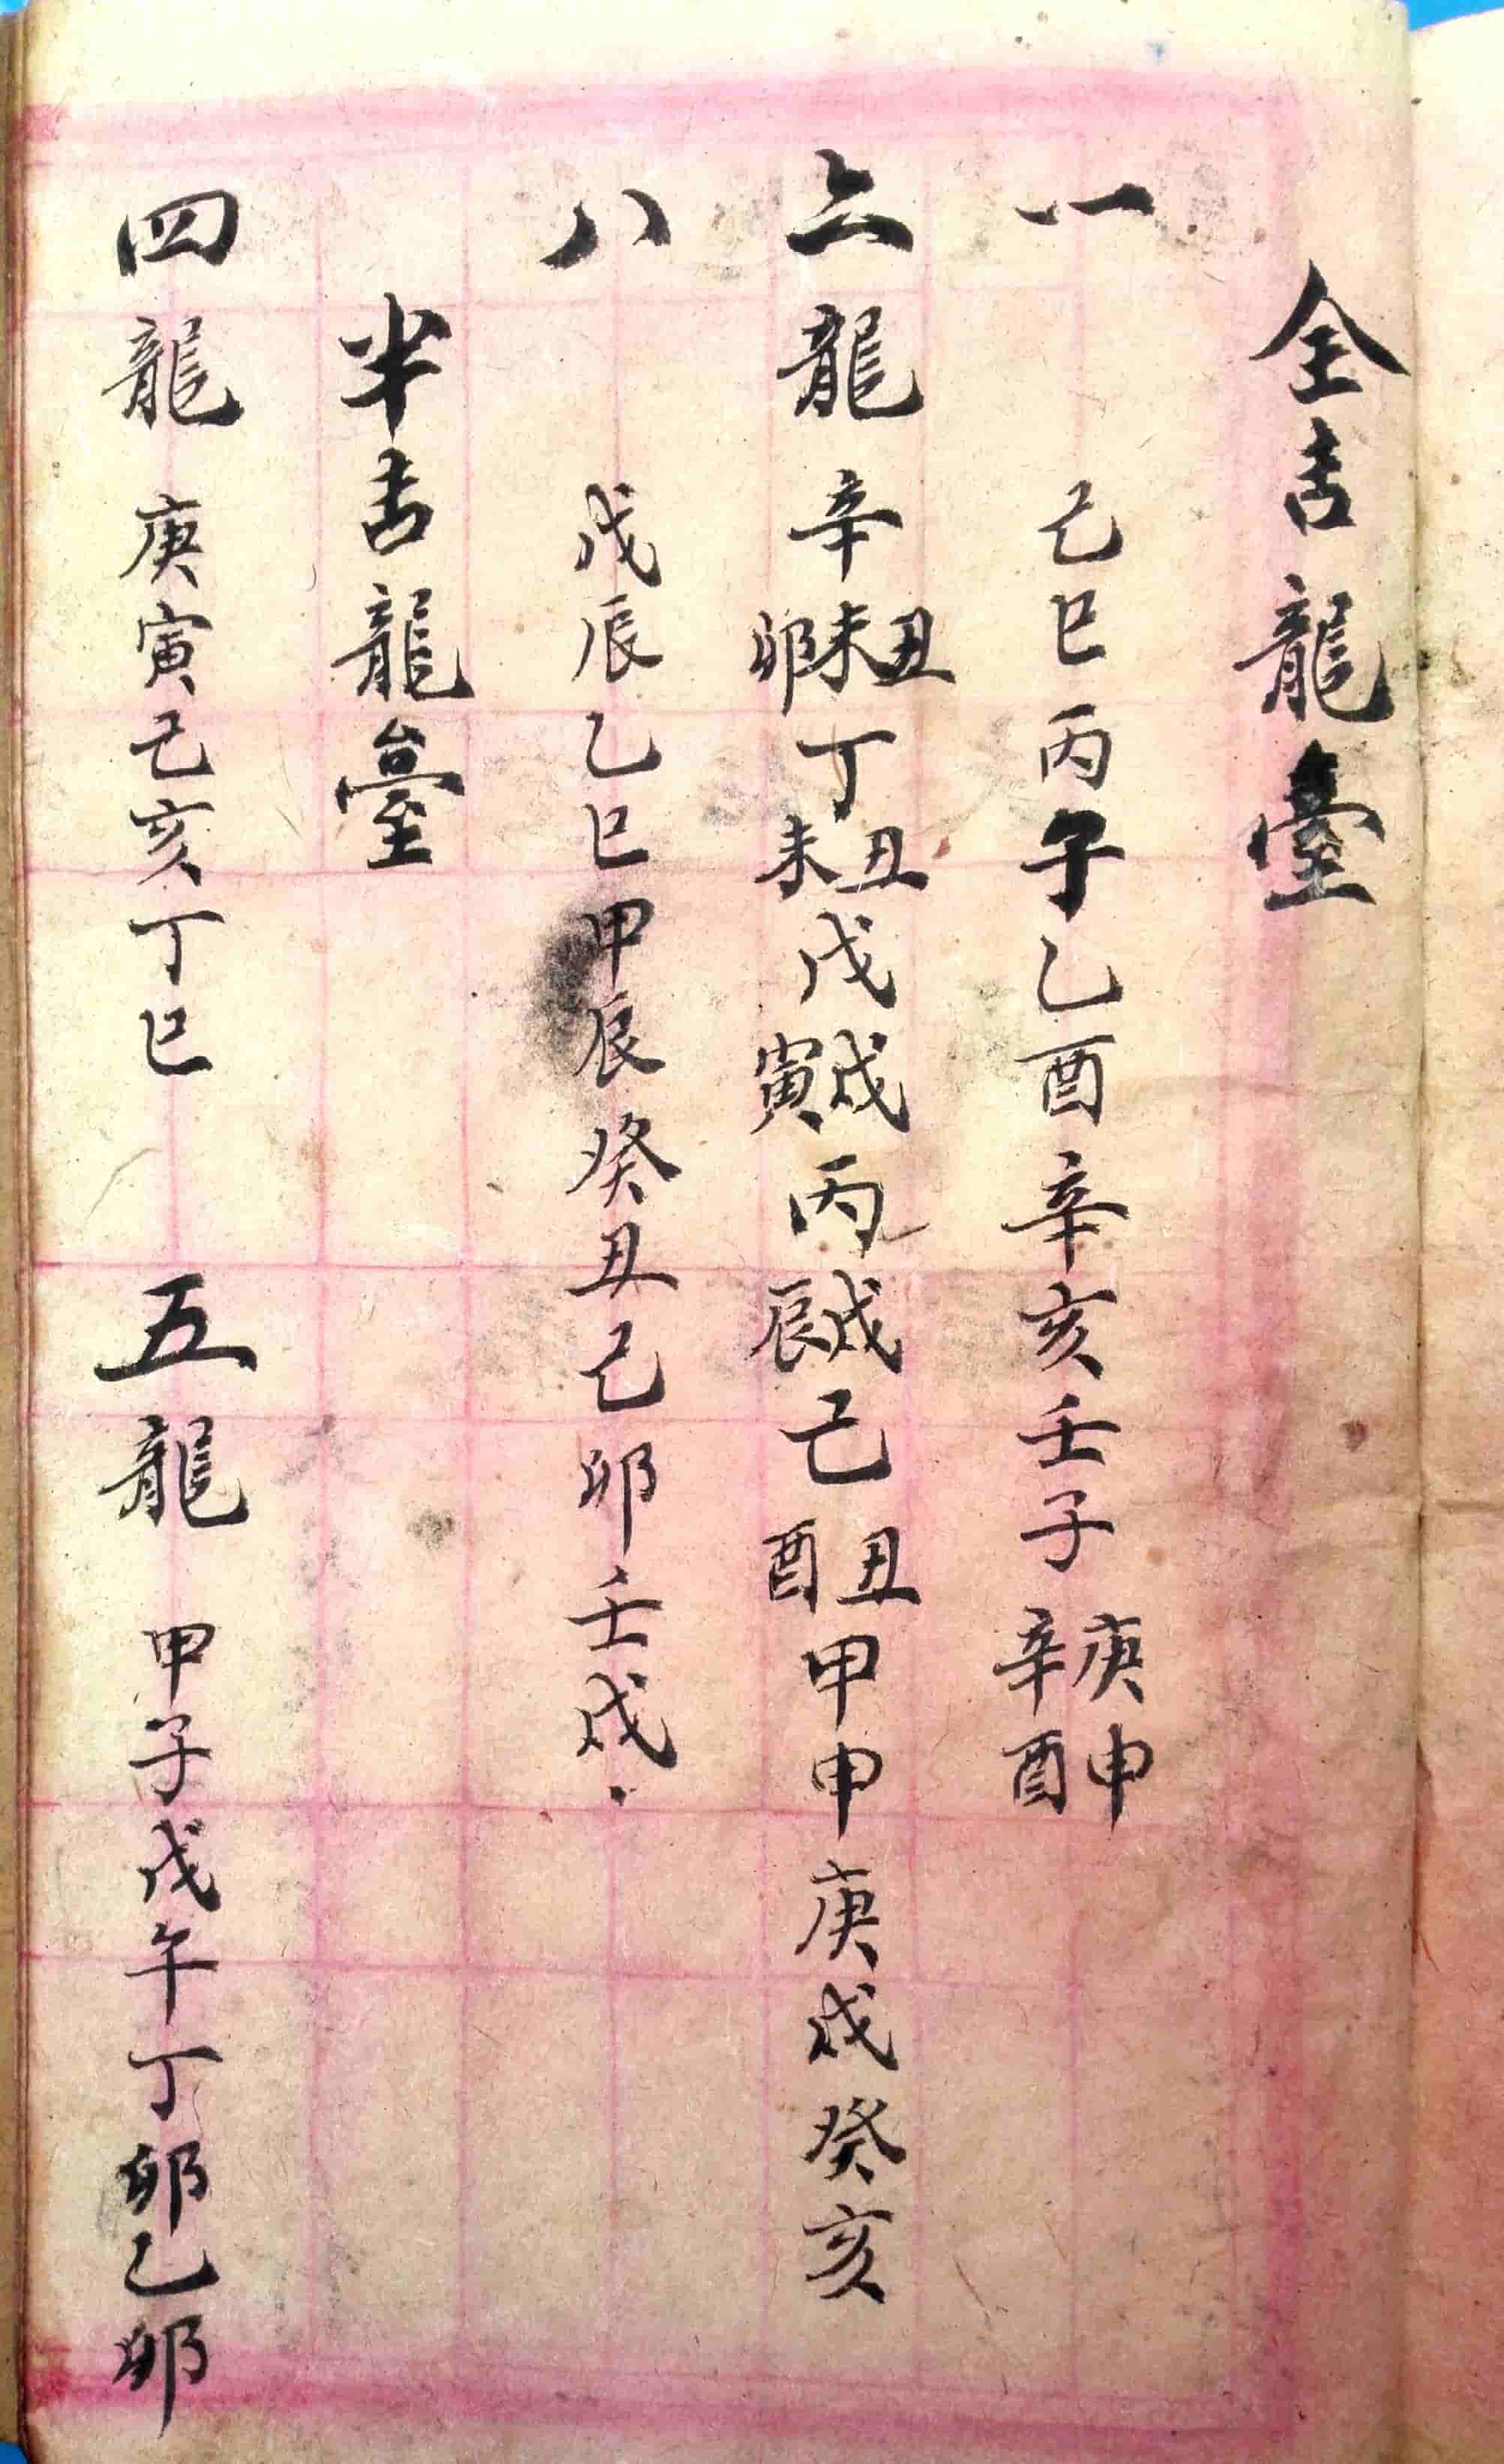 全吉龍臺
一 己巳丙子乙酉辛亥壬子庚申辛酉
六龍 辛丑未卯丁丑未戊戌寅丙戌辰己丑酉甲申庚戌癸亥
八 戊辰乙巳甲辰癸丑己卯壬戌.
半吉龍臺
四龍 庚寅己亥丁巳 五龍 甲子戊午丁卯乙卯